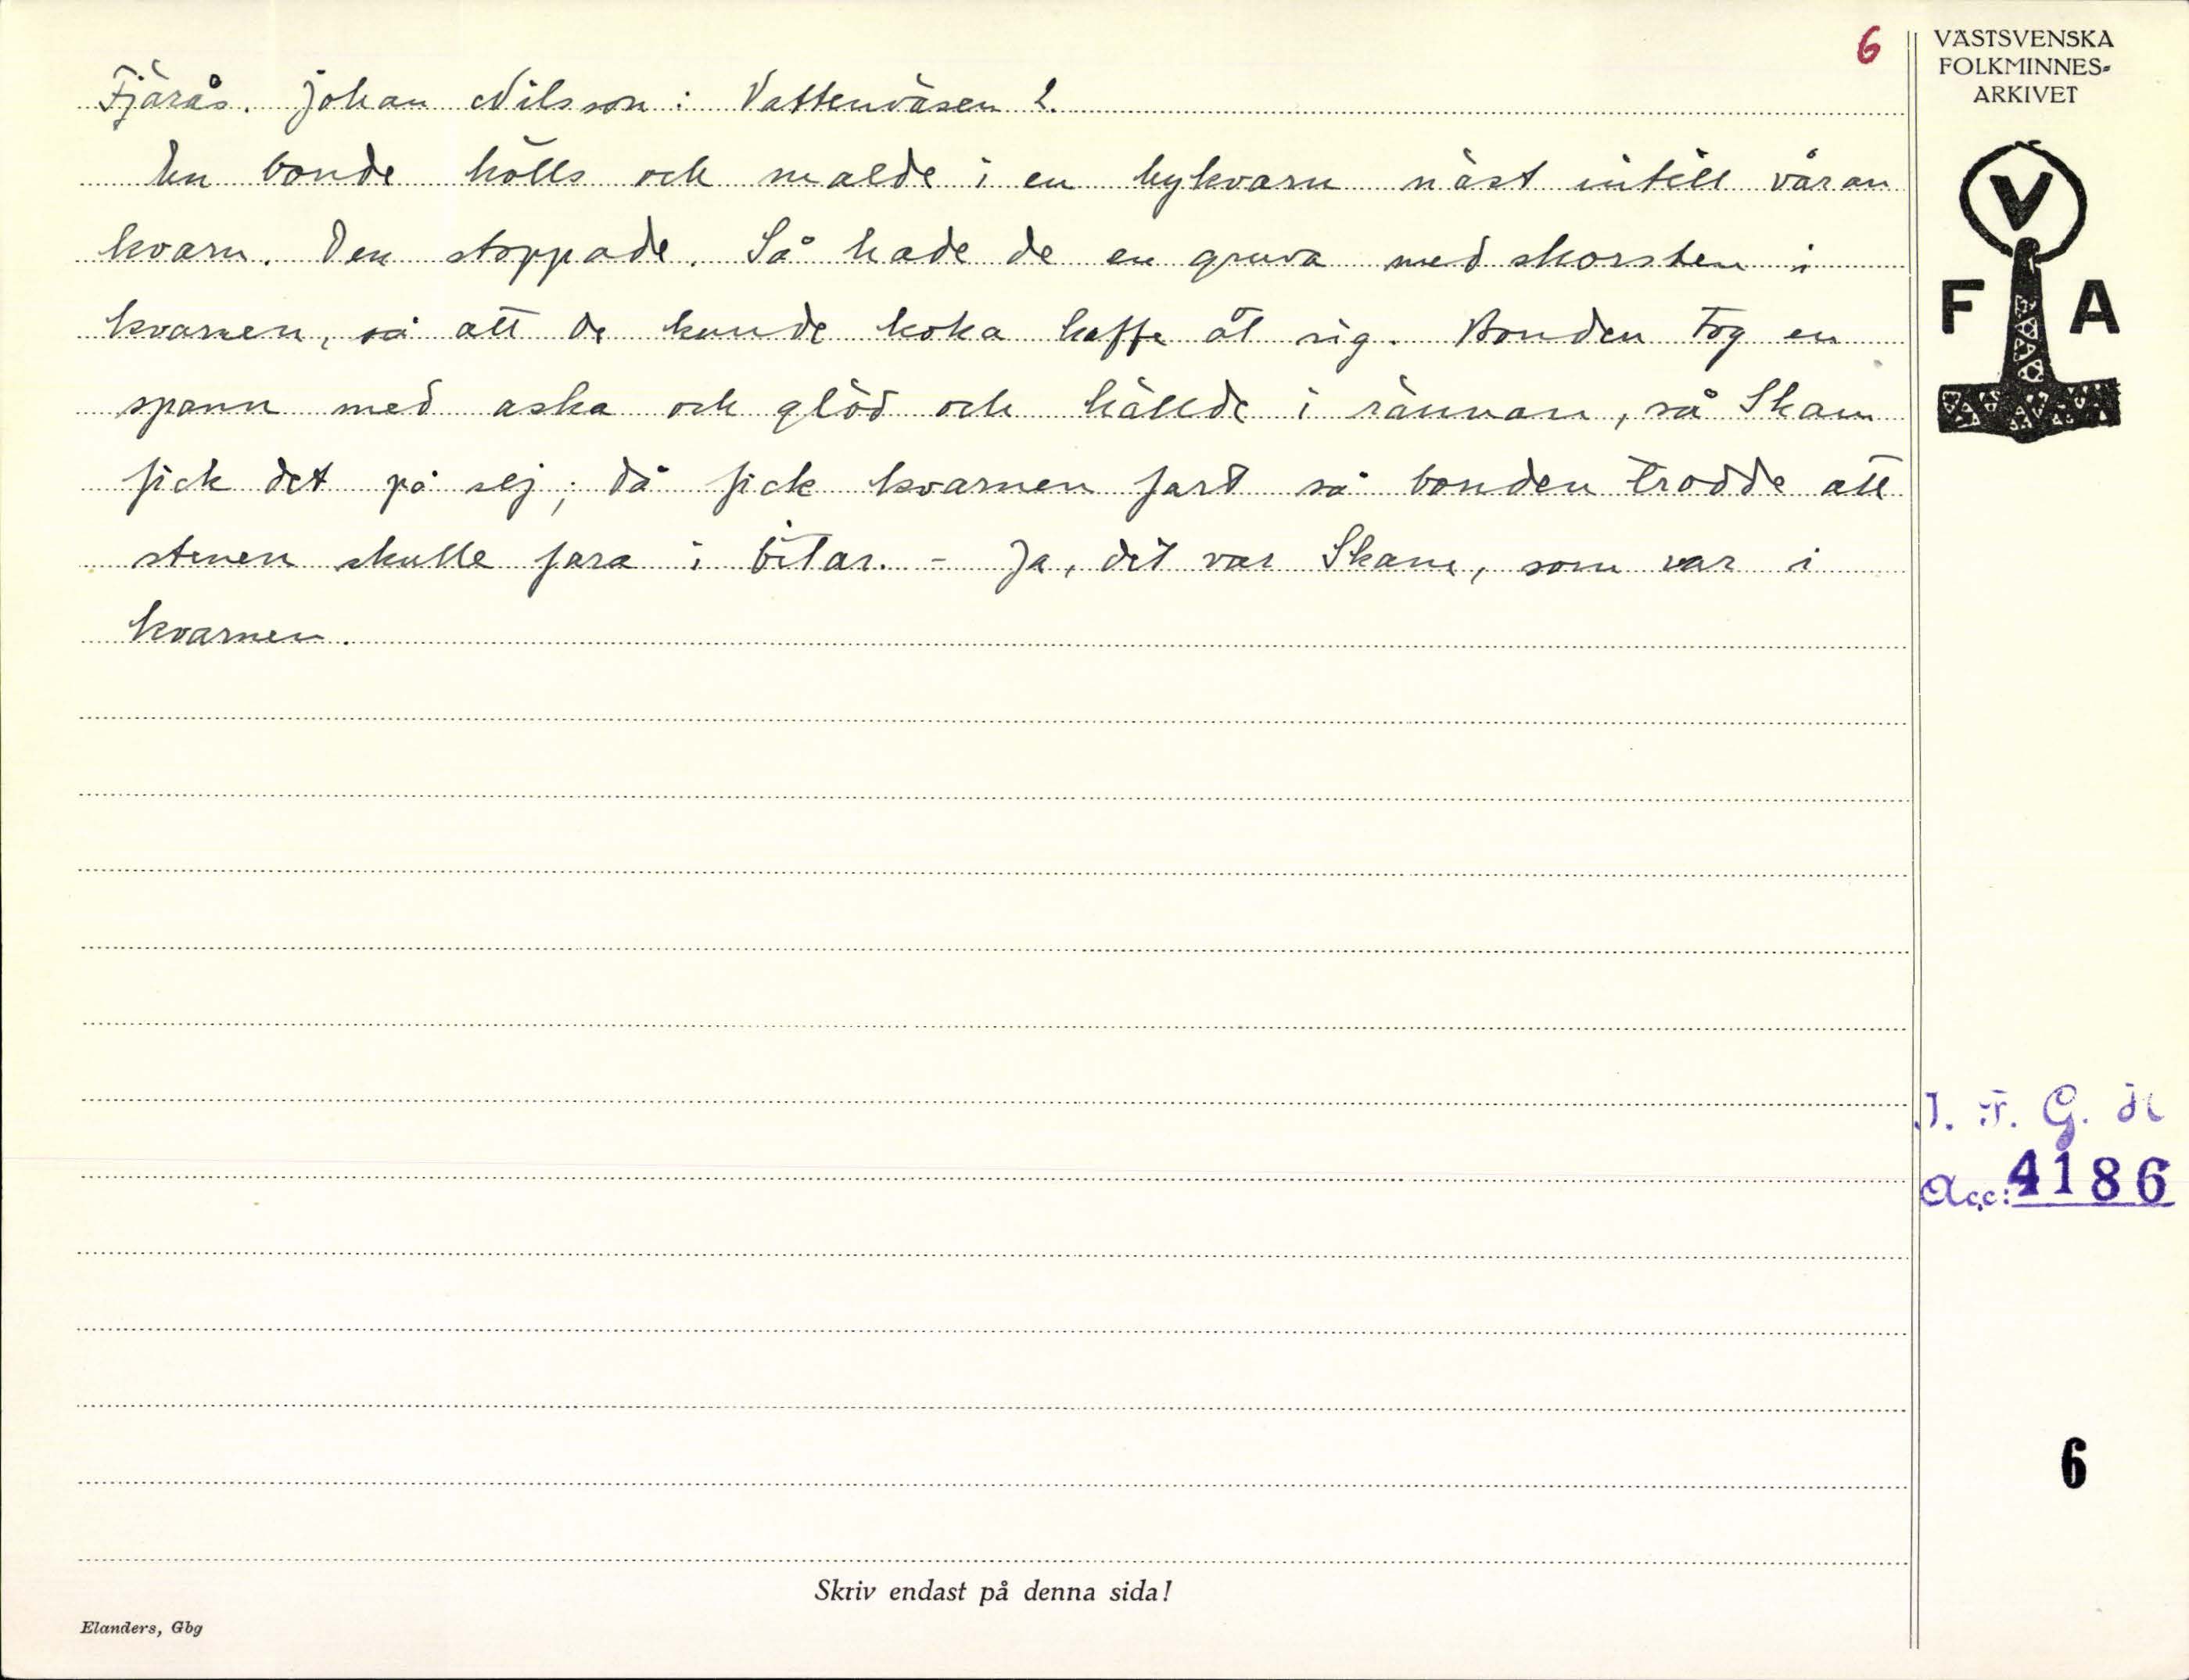 6
VÄSTSVENSKA
FOLKMINNES-
ARKIVET
Fjärås. Johan Nilsson: Vattenväsen 2.
En bonde hölls och malde i en bykvarn näst intill våran
kvarn. Den stoppade. Så hade de en gruva med skorsten i
kvarnen, så att de kunde koka kaffe åt sig. Bonden tog en
spann med aska och glöd och hällde i rännan, så Skam
fick det på sej; då fick kvarnen fart så bonden trodde att
stenen skulle fara i bitar. - Ja, det var Skam, som var i
kvarnen.
V
F A
I. F. G. H
Acc: 4186
6
Skriv endast på denna sida!
Elanders, Gbg